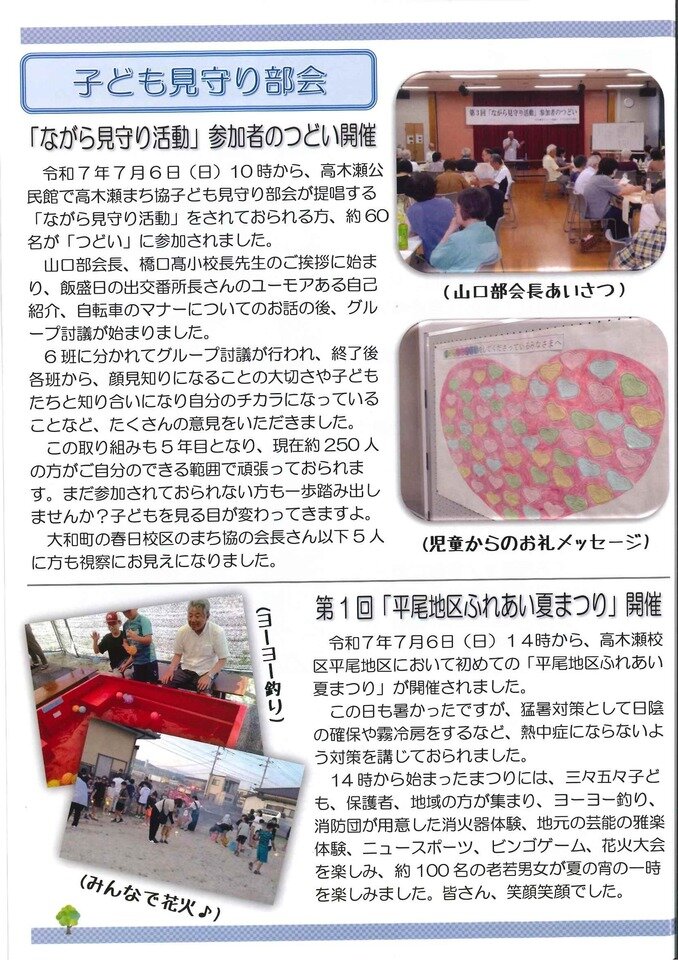 子ども見守り部会
「ながら見守り活動」参加者のつどい開催
令和７年７月６日（日）１０時から、高木瀬公
民館で高木瀬まち協子ども見守り部会が提唱する
「ながら見守り活動」をされておられる方、約６０
名が「つどい」に参加されました。
山口部会長、橋口髙小校長先生のご挨拶に始ま
り、飯盛日の出交番所長さんのユーモアある自己
紹介、自転車のマナーについてのお話の後、グル
ープ討議が始まりました。
６班に分かれてグループ討議が行われ、終了後
各班から、顔見知りになることの大切さや子ども
たちと知り合いになり自分のチカラになっている
ことなど、たくさんの意見をいただきました。
この取り組みも５年目となり、現在約２５０人
の方がご自分のできる範囲で頑張っておられま
す。まだ参加されておられない方も一歩踏み出し
ませんか？子どもを見る目が変わってきますよ。
大和町の春日校区のまち協の会長さん以下５人
に方も視察にお見えになりました。
第３回「ながら見守り活動」参加者のつどい
（山口部会長あいさつ）
してくださっているみなさまへ
（児童からのお礼メッセージ）
第１回「平尾地区ふれあい夏まつり」開催
令和７年７月６日（日）１４時から、高木瀬校
区平尾地区において初めての「平尾地区ふれあい
夏まつり」が開催されました。
この日も暑かったですが、猛暑対策として日陰
の確保や霧冷房をするなど、熱中症にならないよ
う対策を講じておられました。
１４時から始まったまつりには、三々五々子ど
も、保護者、地域の方が集まり、ヨーヨー釣り、
消防団が用意した消火器体験、地元の芸能の雅楽
体験、ニュースポーツ、ビンゴゲーム、花火大会
を楽しみ、約１００名の老若男女が夏の宵の一時
を楽しみました。皆さん、笑顔笑顔でした。
（ヨーヨー釣り）
（みんなで花火♪）